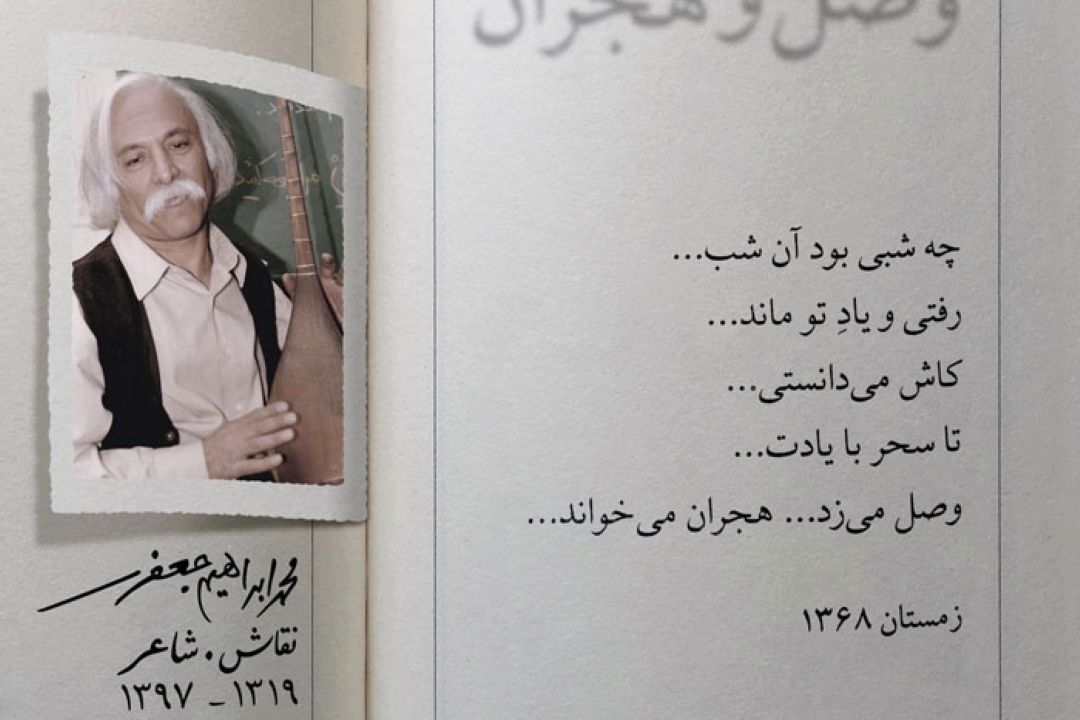 وصل و هجران
چه شبی بود آن شب...
رفتی و یادِ تو ماند...
کاش می‌دانستی...
تا سحر با یادت...
وصل می‌زد... هجران می‌خواند...
زمستان ۱۳۶۸
محمدابراهیم جعفری
نقاش . شاعر
۱۳۱۹ - ۱۳۹۷